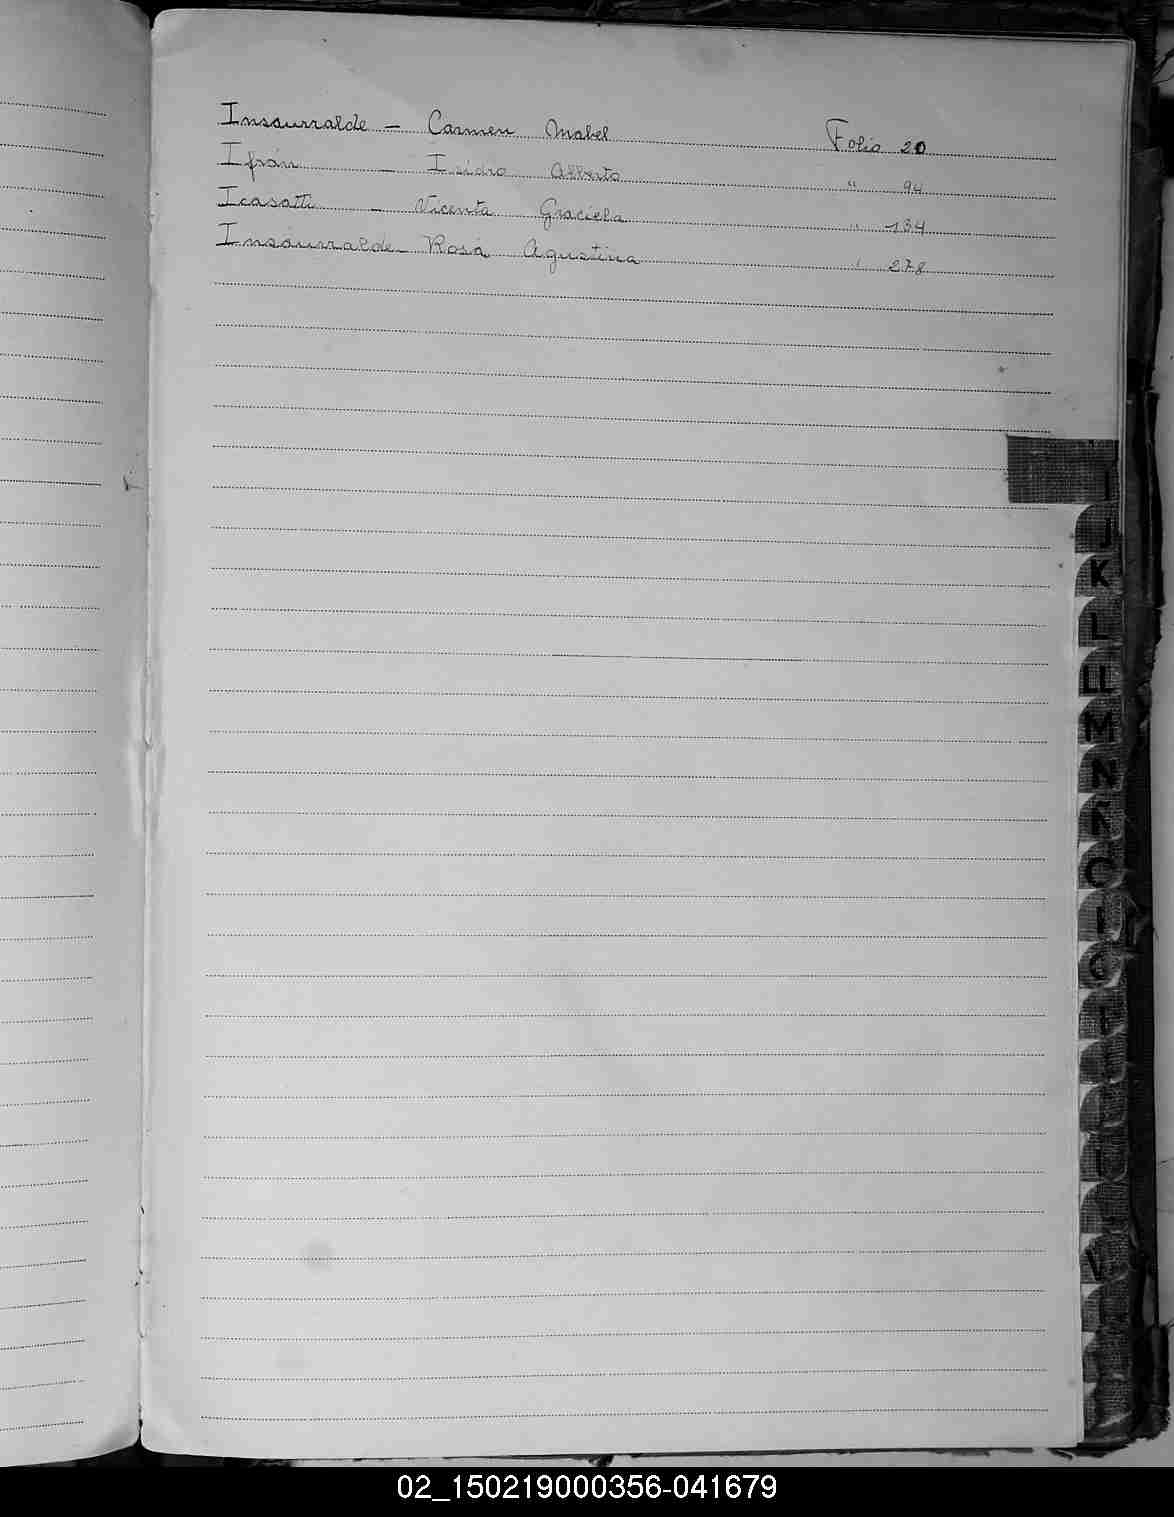 Insaurralde - Carmen Mabel Folio 20
Ifrán - Isidro Alberto " 94
Icasatti - Vicenta Graciela " 134
Insaurralde - Rosa Agustina " 278
I
J
K
L
LL
M
N
Ñ
O
02_150219000356-041679